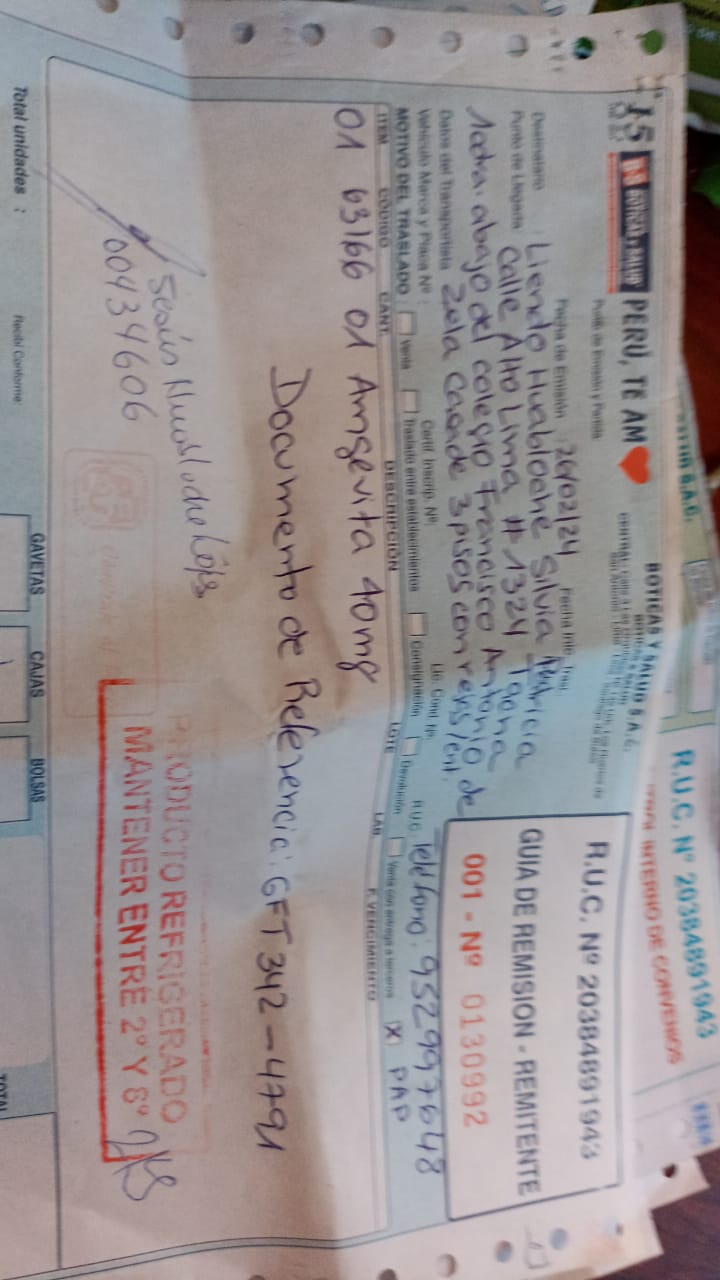 15 BOTICAS Y SALUD PERÚ, TE AM
BOTICAS Y SALUD S.A.C.
R.U.C. Nº 20384891943
INTERNO DE CONVENIOS
R.U.C. Nº 20384891943
GUIA DE REMISION - REMITENTE
001 - Nº 0130992
Punto de Emisión y Partida
Fecha de Emisión 26/02/24
Destinatario : Liendo Huabloche Silvia Patricia
Punto de Llegada Calle Alto Lima # 1324 Tacna
1cdra. abajo del colegio Francisco Antonio de
Datos del Transportista Zela Casa de 3 pisos con
R.U.C. Teléfono: 952997648
Vehículo Marca y Placa Nº Certif. Inscrip. Nº
MOTIVO DEL TRASLADO Venta Traslado entre establecimientos Consignación Devolución Venta con entrega a terceros X PAP
ITEM CÓDIGO CANT. DESCRIPCIÓN LOTE LAB F.VENCIMIENTO
01 63166 01 Amgevita 40mg
Documento de Referencia: GFT 342-4791
Jesús
00434606
PRODUCTO REFRIGERADO
MANTENER ENTRE 2° Y 8°
GAVETAS CAJAS BOLSAS TOTAL
Total unidades : Recibí Conforme: